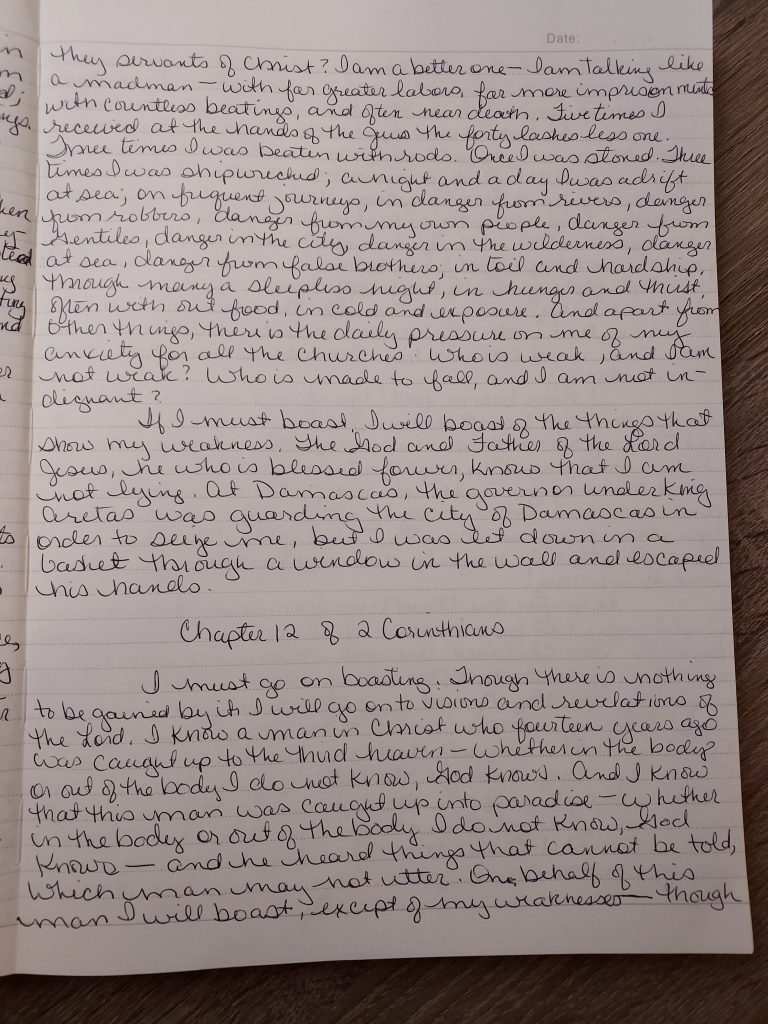 Date:
in
m
d;
ngs.
they servants of Christ? I am a better one — I am talking like
a madman — with far greater labors, far more imprisonments
with countless beatings, and often near death. Five times I
received at the hands of the Jews the forty lashes less one.
Three times I was beaten with rods. Once I was stoned. Three
times I was shipwrecked; a night and a day I was adrift
at sea; on frequent journeys, in danger from rivers, danger
from robbers, danger from my own people, danger from
Gentiles, danger in the city, danger in the wilderness, danger
at sea, danger from false brothers; in toil and hardship,
through many a sleepless night, in hunger and thirst,
often with out food, in cold and exposure. And apart from
other things, there is the daily pressure on me of my
anxiety for all the churches. Who is weak, and I am
not weak? Who is made to fall, and I am not in-
dignant?
If I must boast, I will boast of the things that
show my weakness. The God and Father of the Lord
Jesus, he who is blessed forever, knows that I am
not lying. At Damascas, the governor under King
Aretas was guarding the city of Damascas in
order to seize me, but I was let down in a
basket through a window in the wall and escaped
his hands.
Chapter 12 of 2 Corinthians
I must go on boasting. Though there is nothing
to be gained by it, I will go on to visions and revelations of
the Lord. I know a man in Christ who fourteen years ago
was caught up to the third heaven — whether in the body
or out of the body I do not know, God knows. And I know
that this man was caught up into paradise — whether
in the body or out of the body I do not know, God
knows — and he heard things that cannot be told,
which man may not utter. On behalf of this
man I will boast, except of my weaknesses — though